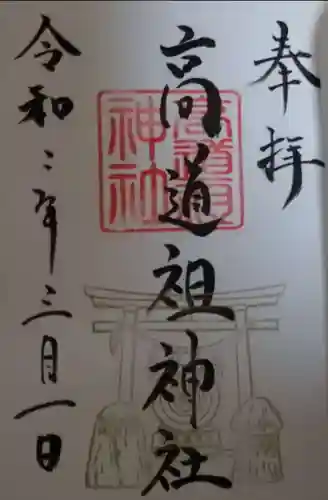 奉拝
高道祖神社
令和二年三月一日
高道祖
神社